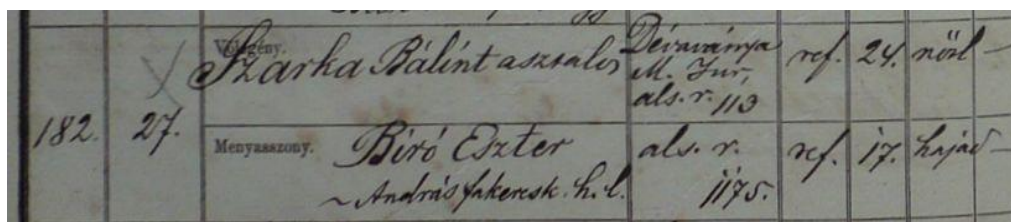 182. 27.
Vőlegény.
Szarka Bálint asztalos
Dévaványa
M. Tur,
als. r. 113
ref. 24. nőtl —
Menyasszony.
Biró Eszter
~ András fakeresk. h. l.
als. r.
1175.
ref. 17. hajad —